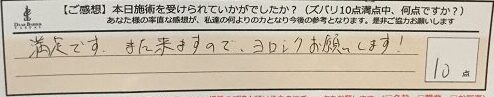 【ご感想】本日施術を受けられていかがでしたか？（ズバリ10点満点中、何点ですか？）
あなた様の率直な感想が、私達の何よりの力となり今後の参考となります。是非ご協力お願いします
満足です。また来ますので、ヨロシクお願いします！
10点